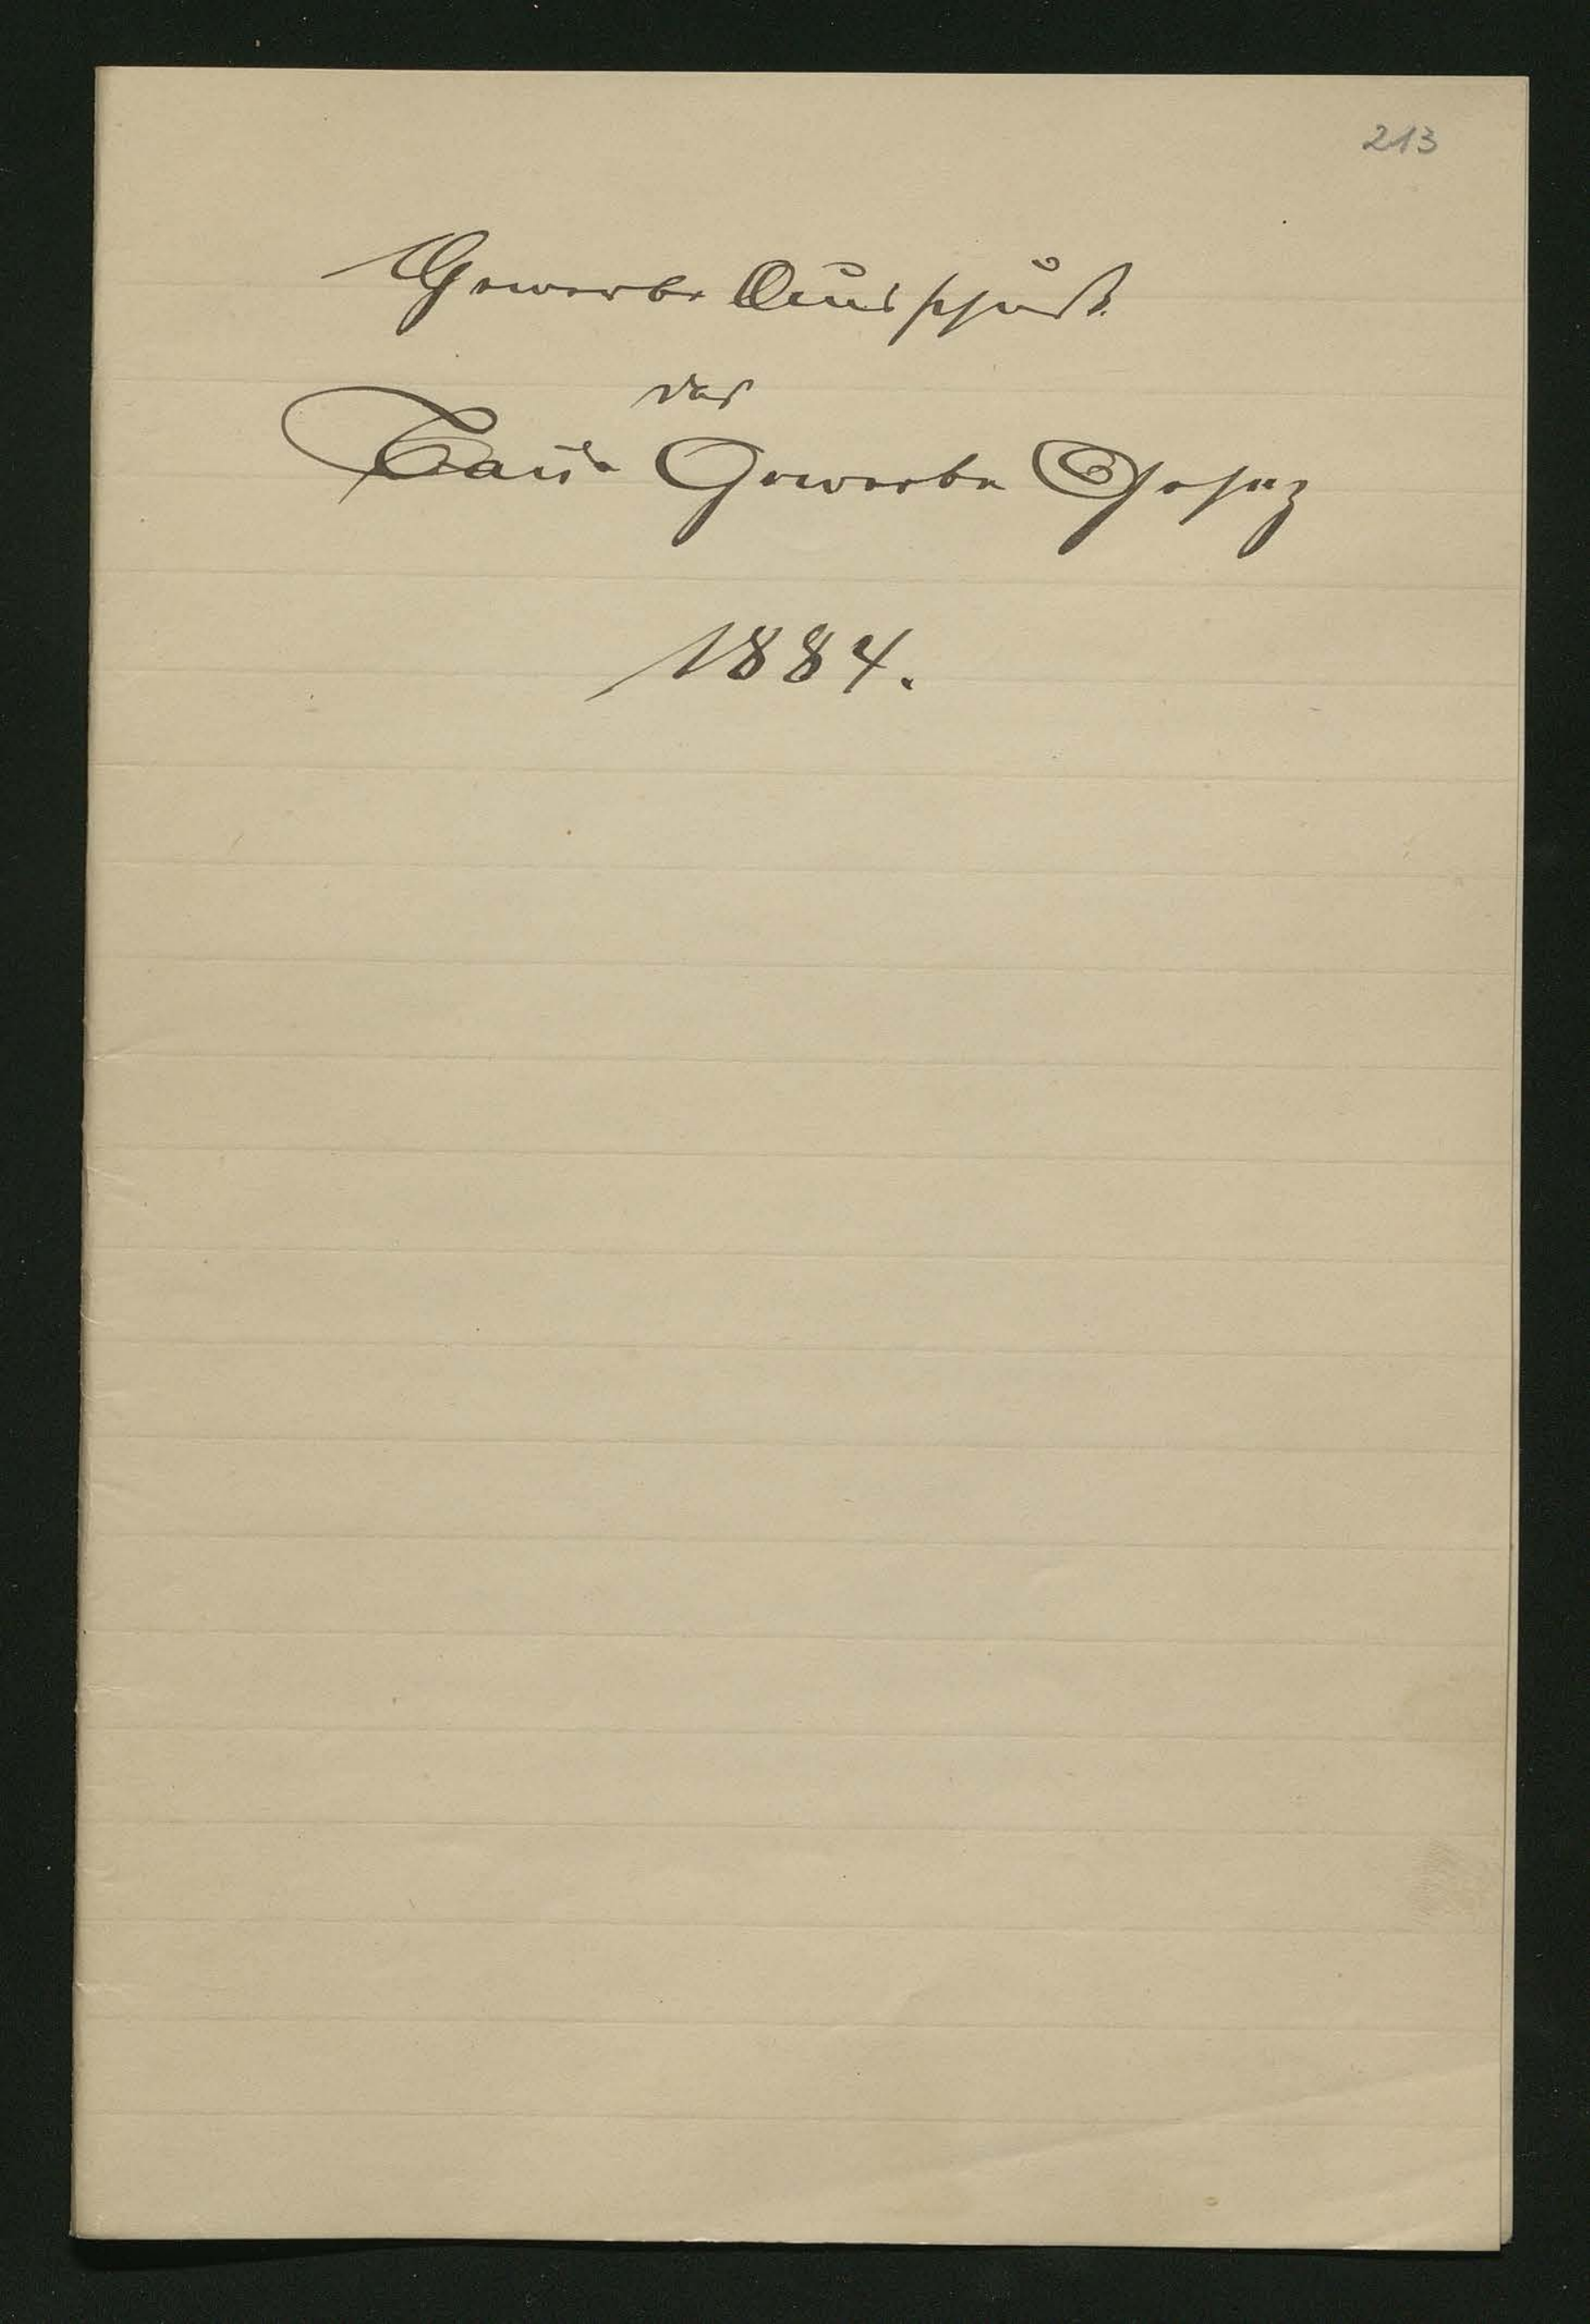 213
Gewerbe Ausschuß
das
Bau Gewerbe Gesez
1884.